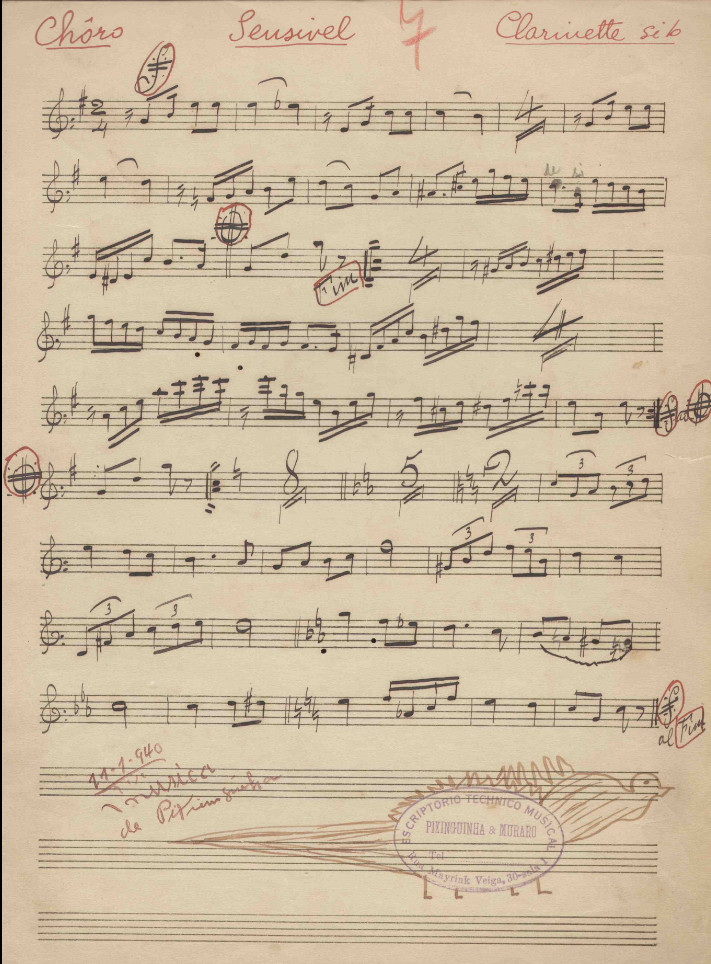 Chôro Sensivel 7 Clarinette sib
2
4
4
de si
Fim
4
4
al
8 5 2 3 3
3 3
3 3
al Fim
11-1-940
musica
de Pixinguinha
ESCRIPTORIO TECHNICO MUSICAL
PIXINGUINHA & MURARO
Tel
Rua Mayrink Veiga, 30-sala 1